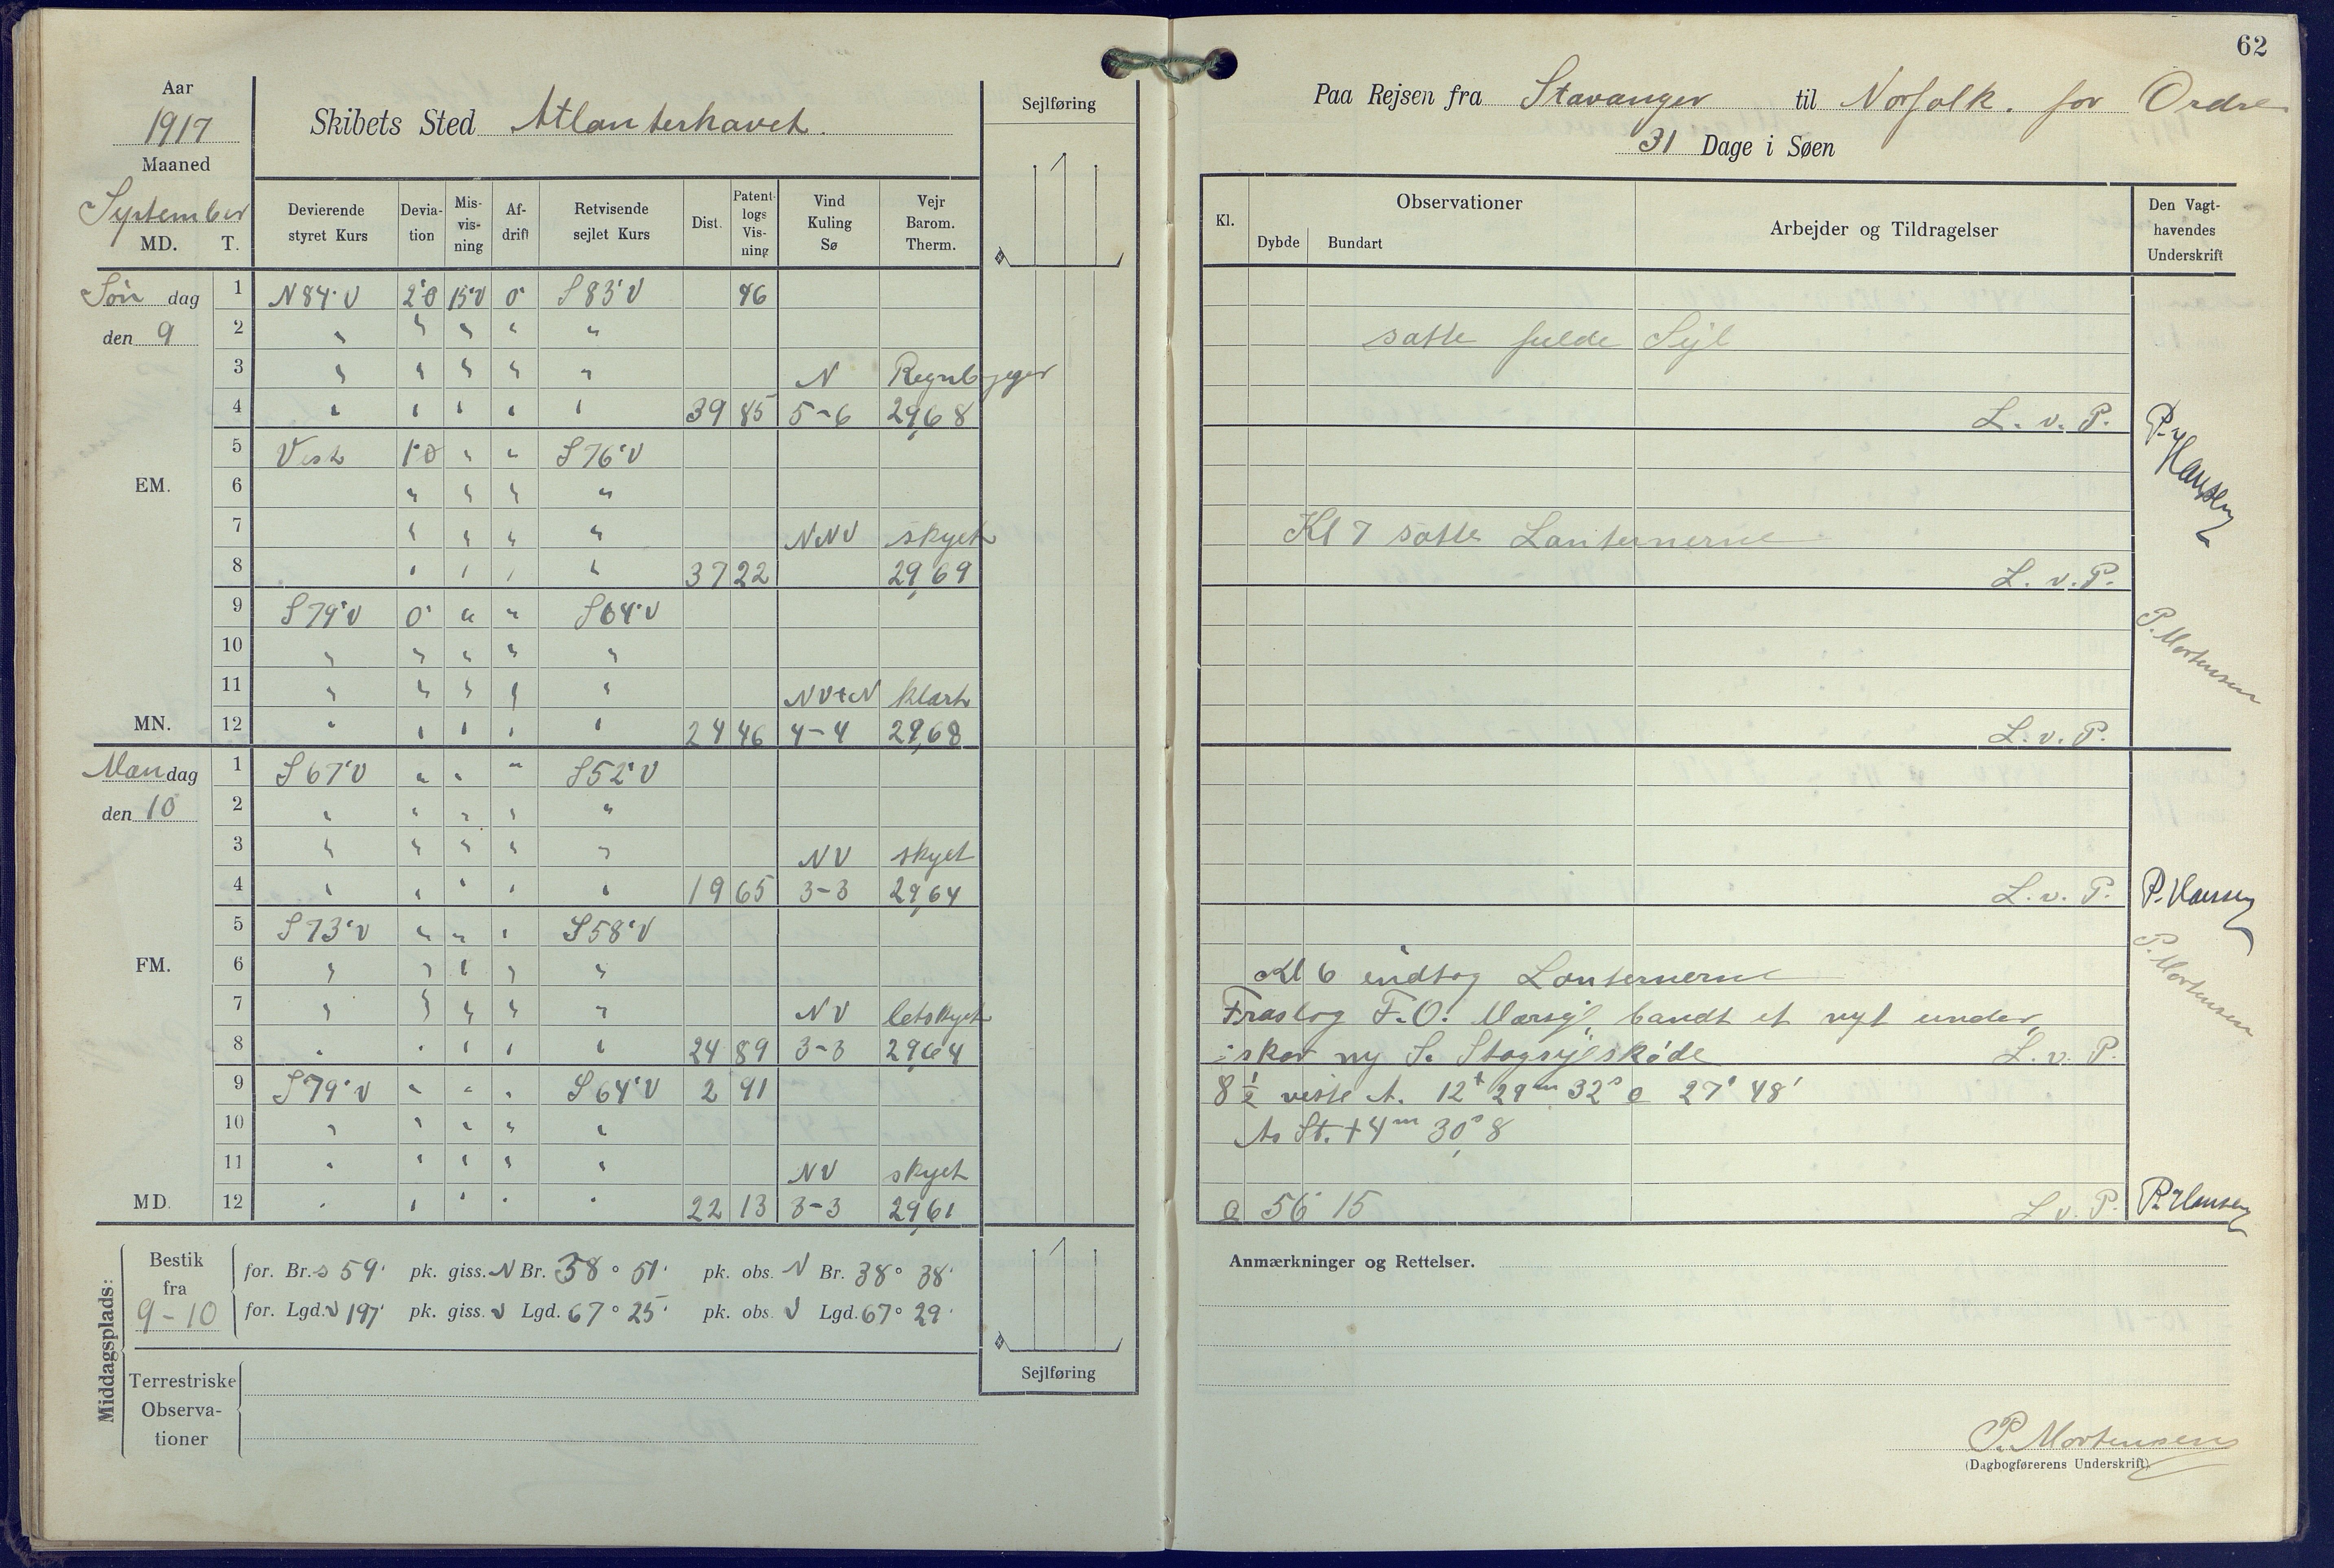 62
Aar
1917
Maaned
September
MD. T.
Skibets Sted Atlanterhavet.
Sejlføring
Devierende styret Kurs
Deviation
Misvisning
Afdrift
Retvisende sejlet Kurs
Dist.
Patentlogs Visning
Vind Kuling Sø
Vejr Barom. Therm.
Søn dag
den 9
1 N84°V 2°Ø 15°V 0° S83°V 46
2 " " " " "
3 " " " " " N Regnbyger
4 " " " " " 39 85 5-6 29,68
5 Vest 1°Ø " " S76°V
EM. 6 " " " "
7 " " " " NNV skyet
8 " " " " 37 22 29,69
9 S79°V 0° " " S64°V
10 " " " " "
11 " " " " " NVtN klart
MN. 12 " " " " " 24 46 4-4 29,68
Man dag
den 10
1 S67°V " " " S52°V
2 " " " " "
3 " " " " " NV skyet
4 " " " " " 19 65 3-3 29,64
5 S73°V " " " S58°V
FM. 6 " " " " "
7 " " " " " NV letskyet
8 " " " " " 24 89 3-3 29,64
9 S79°V " " " S64°V 2 91
10 " " " " "
11 " " " " " NV skyet
MD. 12 " " " " " 22 13 3-3 29,61
Middagsplads:
Bestik
fra
9-10
for. Br. S 59' pk. giss. N Br. 38° 51' pk. obs. N Br. 38° 38'
for. Lgd. V 197' pk. giss. V Lgd. 67° 25' pk. obs. V Lgd. 67° 29'
Terrestriske
Observa-
tioner
Sejlføring
Paa Rejsen fra Stavanger til Norfolk. for Ordre
31 Dage i Søen
Kl.
Observationer
Dybde Bundart
Arbejder og Tildragelser
Den Vagt-
havendes
Underskrift
satte fulde Sejl
L. v. P.
P. Hansen
Kl 7 satte Lanternerne
L. v. P.
P. Mortensen
L. v. P.
L. v. P. P. Hansen
Kl 6 indtog Lanternerne
P. Mortensen
Fraslog F.O. Mærsejl, bandt et nyt under,
iskar ny S. Stagsejlskøde L. v. P.
8 ½ viste A. 12t 29m 32s 27° 48'
As St. + 4m 30,s8
56° 15 L v. P. P. Hansen
Anmærkninger og Rettelser.
P. Mortensen
(Dagbogførerens Underskrift)